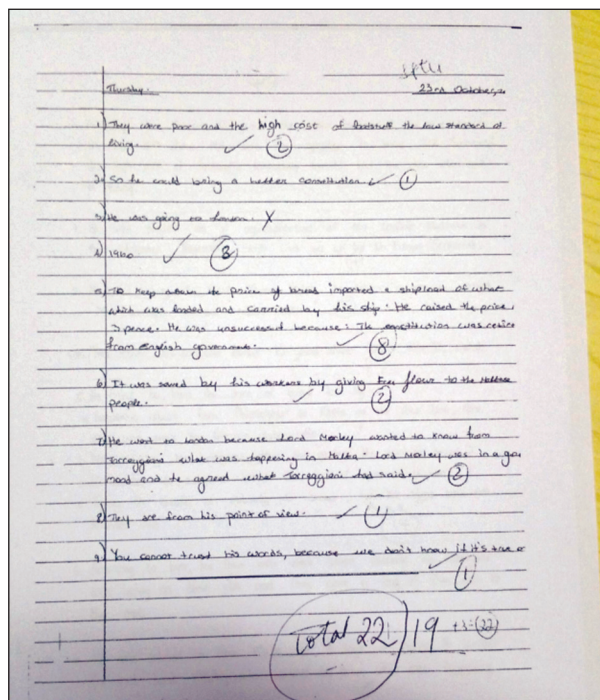 Thursday.
23rd October,
1) They were poor and the high cost of foodstuff the low standard of
living. 2
2) So he could bring a better constitution. 1
3) He was going to X
4) 1920 3
5) To keep down the price of bread imported a shipload of wheat
which was loaded and carried by his ship. He raised the price,
3 pence. He was unsuccessed because: The constitution was
from English government. 8
6) It was saved by his workers by giving Free flour to the Maltese
people. 2
7) He went to London because Lord Morley wanted to know from
Torreggiani what was happening in Malta. Lord Morley was in a
mood and he agreed what Torreggiani had said. 2
8) They are from his point of view. 1
9) You cannot trust his words, because we don't know if it's true or
1
Total 22 19 +3=22